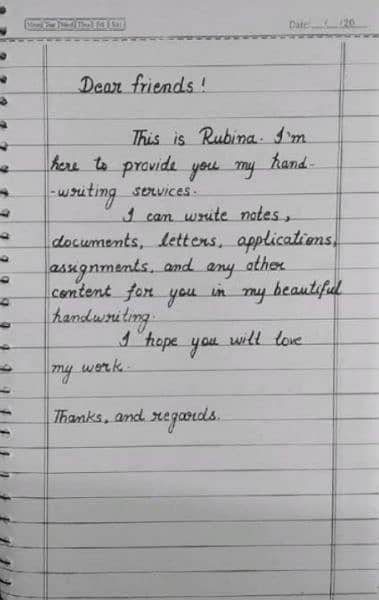 Mon Tue Wed Thu Fri Sat
Date: __/__/20
Dear friends!
This is Rubina. I'm
here to provide you my hand-
-writing services.
I can write notes,
documents, letters, applications,
assignments, and any other
content for you in my beautiful
handwriting.
I hope you will love
my work.
Thanks, and regards.